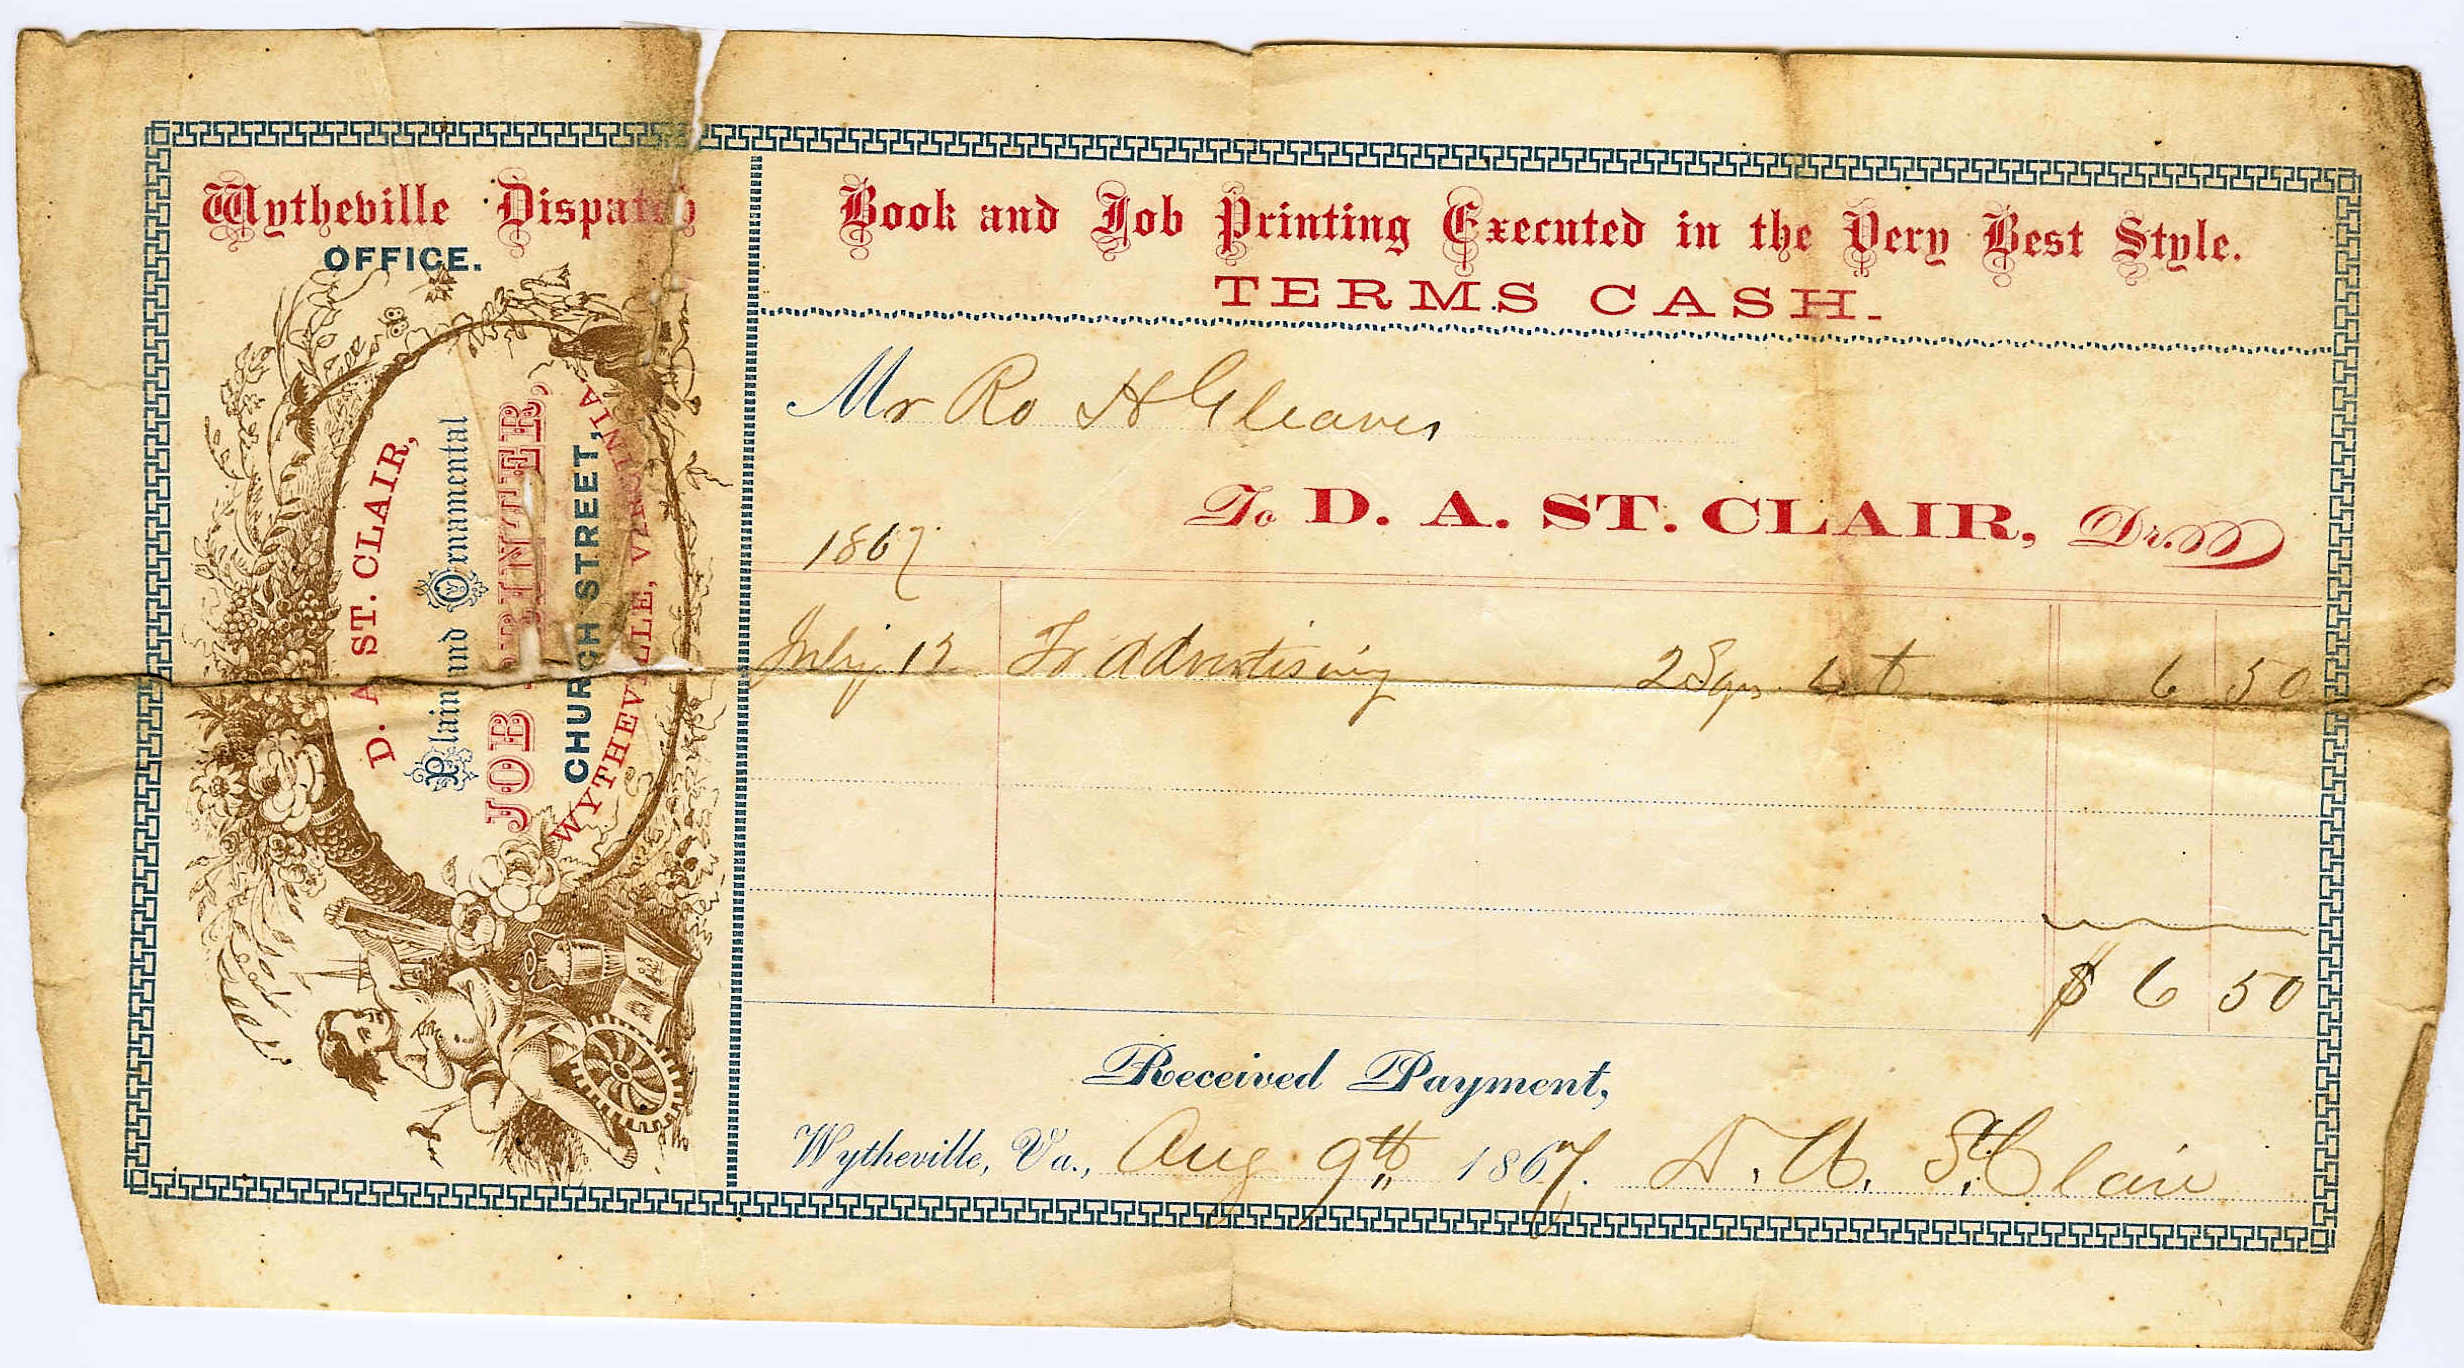 Wytheville Dispatch
OFFICE.
D. A ST. CLAIR,
Plain and Ornamental
JOB PRINTER,
CHURCH STREET,
WYTHEVILLE, VIRGINIA.
Book and Job Printing Executed in the Very Best Style.
TERMS CASH.
Mr Ro H Gleaves
To D. A. ST. CLAIR, Dr.
1867
July 12 To Advertising 2 Sqrs 6 50
$ 6 50
Received Payment,
Wytheville, Va., Aug 9th 1867. D. A. St. Clair